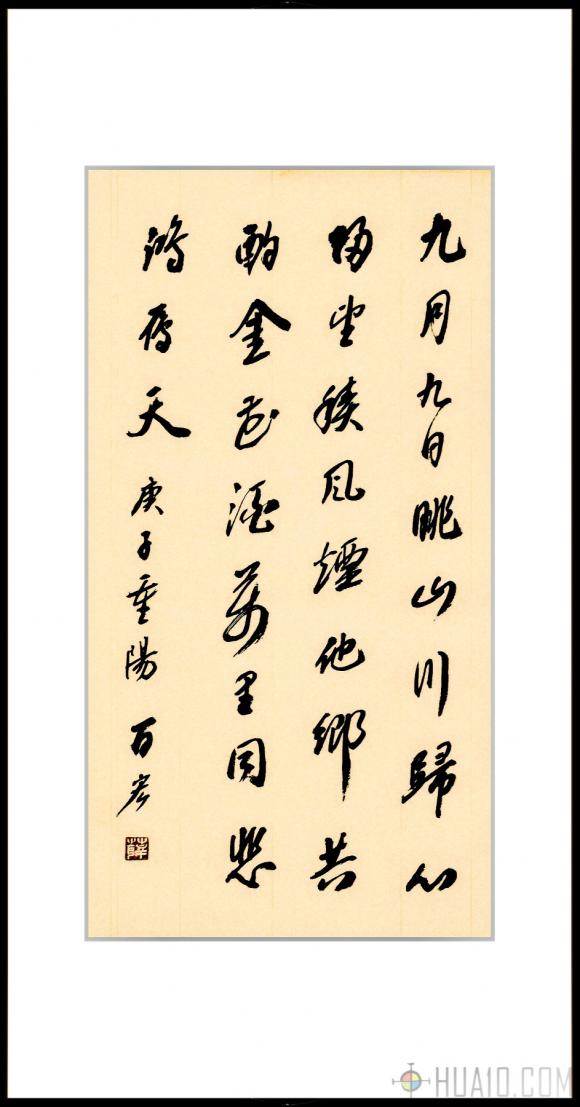 九月九日眺山川歸心
歸望積風煙他鄉共
酌金花酒萬里同悲
鴻鴈天 庚子重陽 百
薛
HUA10.COM